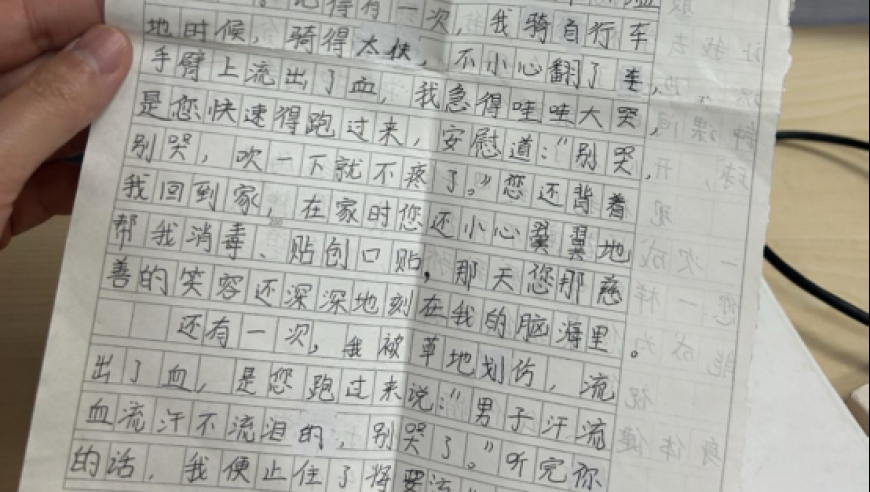 记得有一次，我骑自行车
地时候，骑得太快，不小心翻了车，
手臂上流出了血，我急得哇哇大哭，
是您快速得跑过来，安慰道：“别哭，
别哭，吹一下就不疼了。”您还背着
我回到家，在家时您还小心翼翼地
帮我消毒、贴创口贴，那天您那慈
善的笑容还深深地刻在我的脑海里。
还有一次，我被草地划伤，流
出了血，是您跑过来说：“男子汗流
血流汗不流泪的，别哭了。”听完你
的话，我便止住了将要流